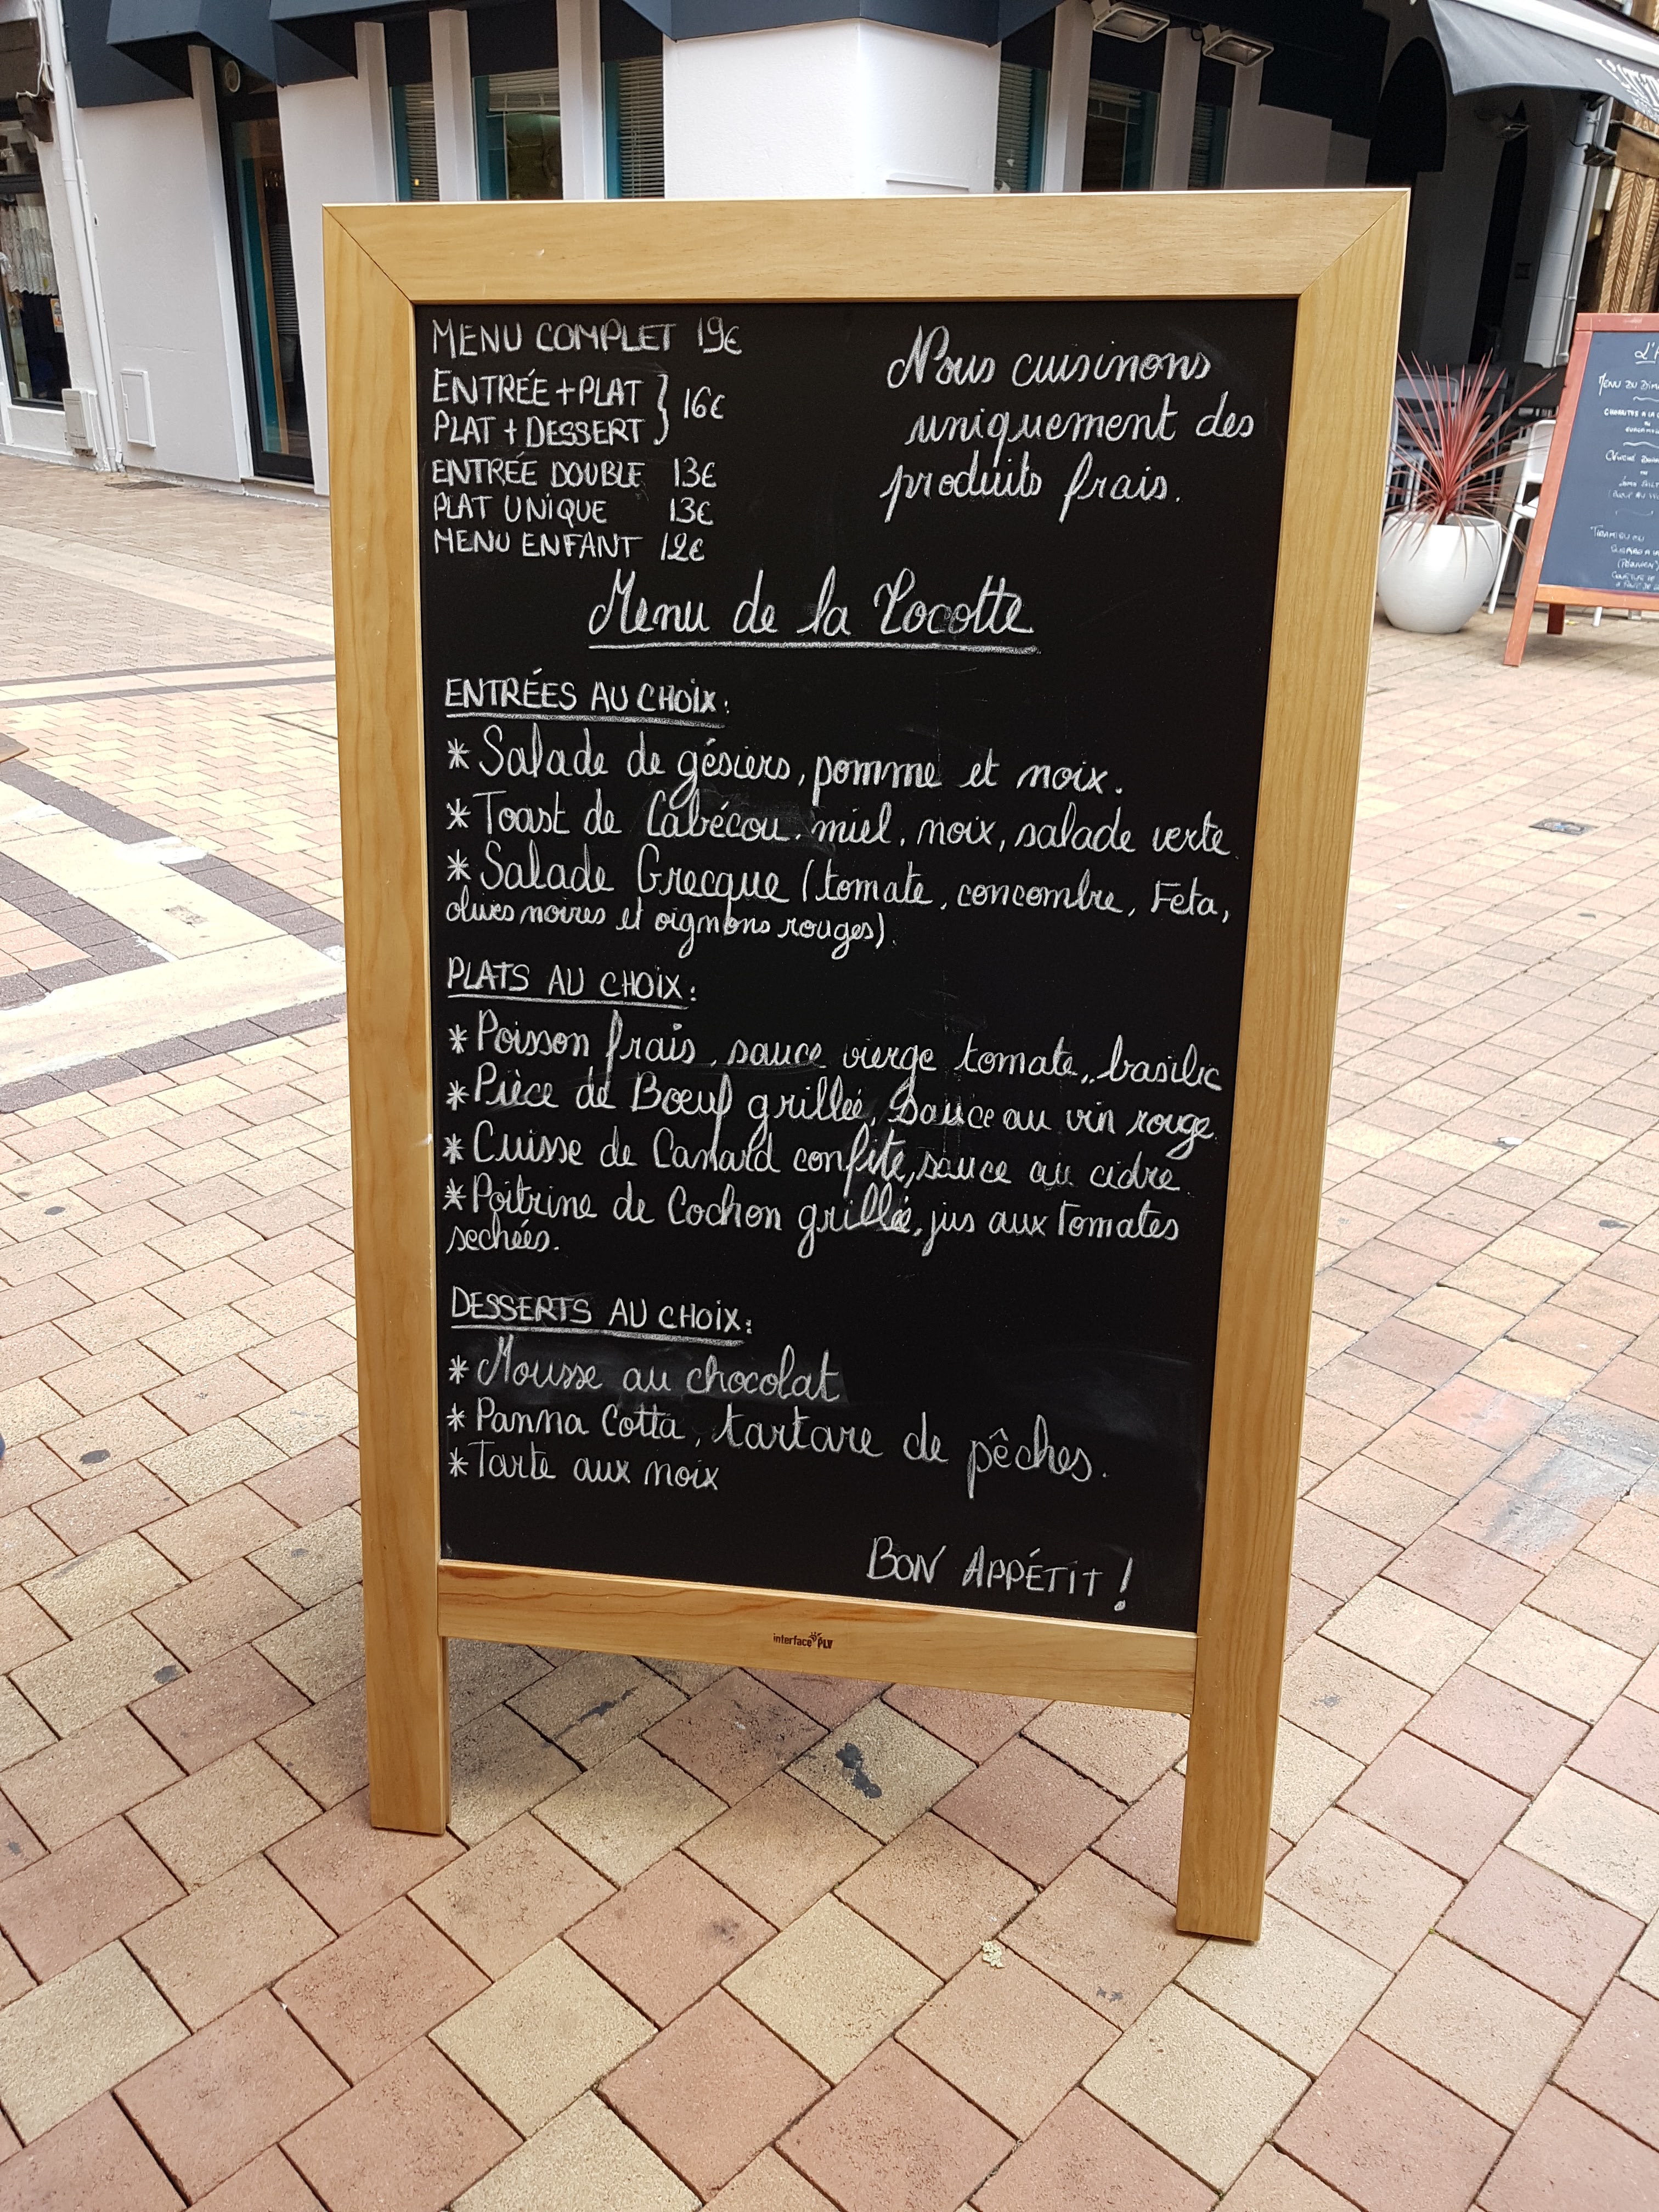 MENU COMPLET 19€
ENTRÉE + PLAT
PLAT + DESSERT } 16€
ENTRÉE DOUBLE 13€
PLAT UNIQUE 13€
MENU ENFANT 12€
Nous cuisinons
uniquement des
produits frais.
Menu de la Cocotte
ENTRÉES AU CHOIX:
* Salade de gésiers, pomme et noix.
* Toast de Cabécou, miel, noix, salade verte.
* Salade Grecque (tomate, concombre, Feta,
olives noires et oignons rouges).
PLATS AU CHOIX:
* Poisson frais, sauce vierge tomate, basilic
* Pièce de Boeuf grillée, Sauce au vin rouge.
* Cuisse de Canard confite, sauce au cidre.
* Poitrine de Cochon grillée, jus aux Tomates
sechées.
DESSERTS AU CHOIX:
* Mousse au chocolat
* Panna Cotta, tartare de pêches.
* Tarte aux noix
BON APPÉTIT !
interface PLV
MENU DU